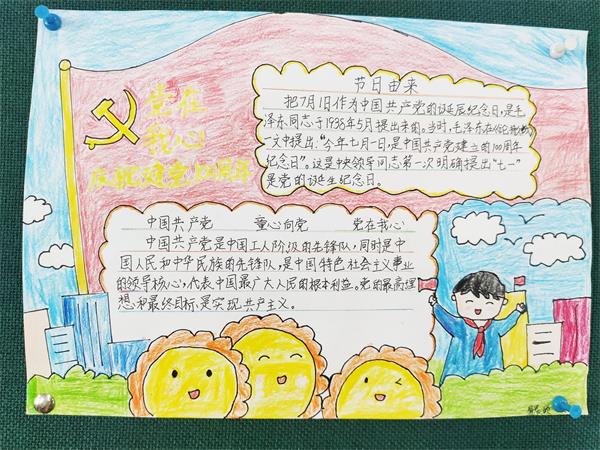 党在
我心
庆祝建党100周年
节日由来
把7月1日作为中国共产党的诞辰纪念日,是毛
泽东同志于1938年5月提出来的。当时,毛泽东在《论持久战》
一文中提出:“今年七月一日,是中国共产党建立的100周年
纪念日”。这是中央领导同志第一次明确提出“七一”
是党的诞生纪念日。
中国共产党 童心向党 党在我心
中国共产党是中国工人阶级的先锋队,同时是中
国人民和中华民族的先锋队,是中国特色社会主义事业
的领导核心,代表中国最广大人民的根本利益。党的最高理
想和最终目标是实现共产主义。